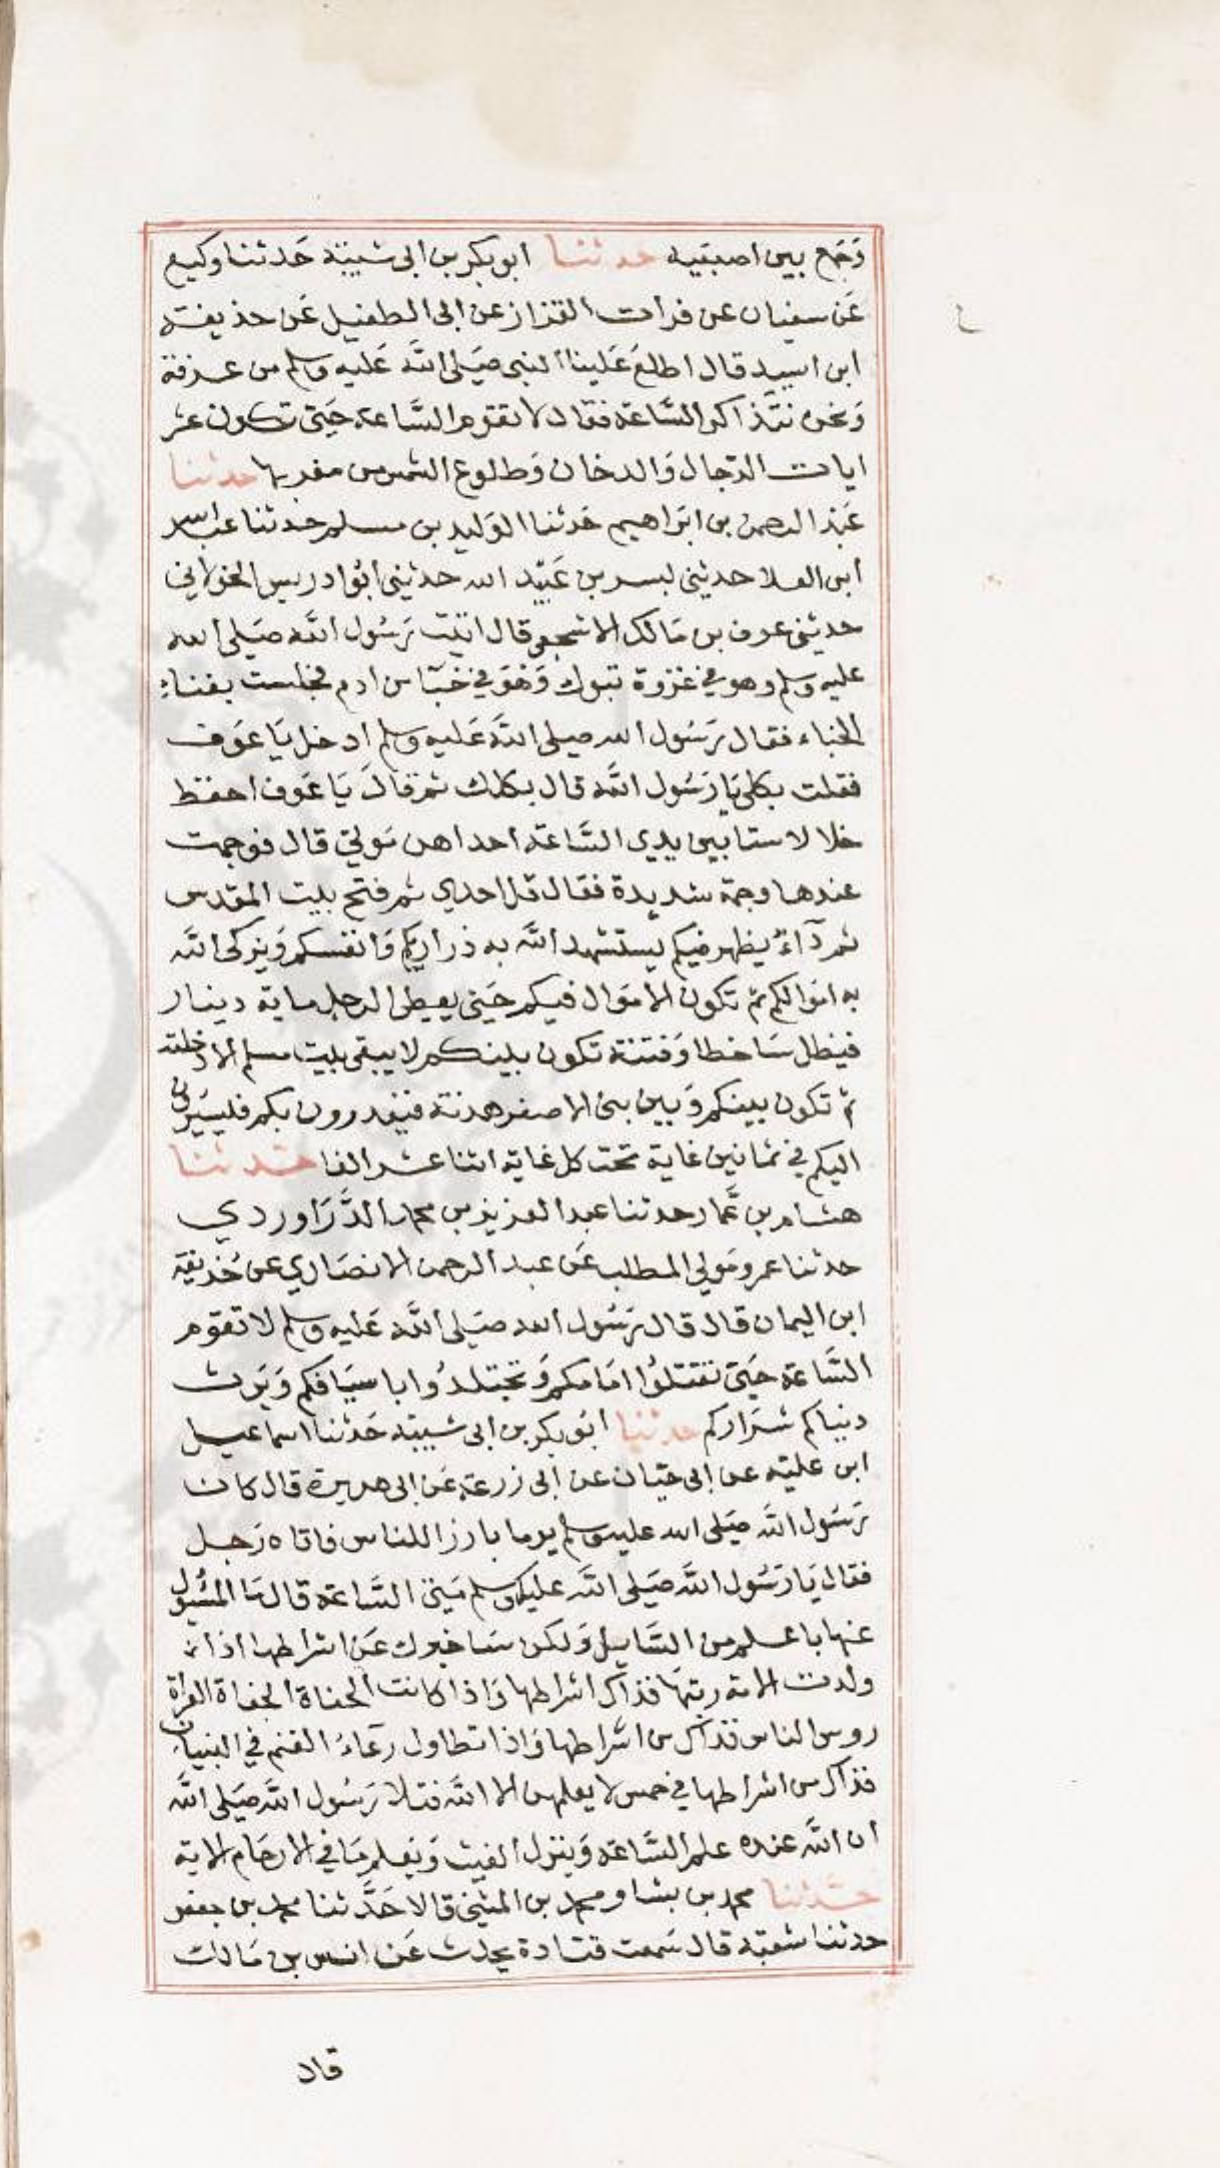 وَجَمع بين اصبعيه حدثنا ابو بكر بن ابى شيبة حَدثنا وكيع
عَن سفيان عن فرات القزاز عن ابى الطفيل عَن حذيفة
ابن اسيد قال اطلعَ عَلينا النبى صَلى اللَّه عَليه وسلم من غرفة
وَنحن نتَذاكر السَّاعة فقال لا تقوم السَّاعة حَتى تكون عشر
ايات الدّجال وَالدخان وَطلوع الشمس من مغربها حدثنا
عَبد الرحمن بن ابَراهيم حَدثنا الوَليد بن مسلم حدثنا عبد الله
ابن العلا حدثنى بسر بن عبَيد الله حدثنى ابُو ادريس الخولاني
حدثنى عوف بن مَالك الاشجعى قال اتيت رَسُول اللَّه صَلى الله
عليه وسلم وهو في غزوة تبوك وَهوَ في خبَآ من ادم فجلست بفناء
الخباء فقال رَسُول الله صلى اللَّه عَليه وسلم ادخل يَا عوَف
فقلت بكلى يَا رَسُول اللَّه قال بكلك ثم قالَ يَا عَوف احفظ
خلالا ستا بين يدي السَّاعة احداهن مَوتي قال فوجمت
عندها وجمة شديدة فقال قل احدي ثم فتح بيت المقدس
ثم دَآءٌ يظهر فيكم يستشهد اللَّه به ذراريكم وَانفسكم وَيزكى اللَّه
به امَوالكم ثم تكون الامَوال فيكم حَتى يعطى الرجل ماية دينار
فيظل سَاخطا وَفتنة تكون بينكم لا يبقى بيت مسلم الا دخلته
ثم تكون بينكم وَبين بنى الاصفر هدنة فيغدرون بكم فيسيَرون
اليكم في ثمانين غاية تحت كل غاية اثنا عشر الفا حَدثنا
هشام بن عَّمار حدثنا عبد العزيز بن محمد الدَّرَاوردي
حدثنا عمرو مَولي المطلب عَن عبد الرحمن الانصَاري عن حُذيفة
ابن اليمان قال قال رَسُول الله صَلى اللَّه عَليه وسلم لا تقوم
السَّاعة حَتى تقتتلوُا امَامكم وَتجتلدُوا باسيَافكم وَيَرث
دنياكم شرَاركم حدثنا ابُو بكر بن ابى شيبة حَدثنا اسماعيل
ابن علية عن ابى حيّان عن ابى زرعة عَن ابى هريرة قال كان
رَسُول اللَّه صَلى الله عليه وسلم يوما بارزا للناس فاتاه رَجل
فقال يَا رَسُول اللَّه صَلى اللَّه عليك وسلم مَتى السَّاعة قال مَا المسُئول
عنها باعلم من السَّايل وَلكن سَاخبرك عَن اشراطها اذا
ولدت الامة ربتهَا فذاك اشراطها وَاذا كانت الحفاة الجفاة العراة
روس الناس فذاك من اشراطها وَاذا تطاول رعَاءُ الغنم في البنيان
فذاك من اشراطها في خمس لا يعلمهن الا اللَّه فتلا رَسُول اللَّه صَلى اللَّه
ان اللَّه عنده علم السَّاعة وَينزل الغيث وَيعَلم مَا في الارحَام الاية
حَدثنا محمد بن بشار ومحمد بن المثنى قالا حَدَّثنا محمد بن جعفر
حدثنا شعبة قال سَمعت قتادة يحدث عَن انس بن مَالك
قال